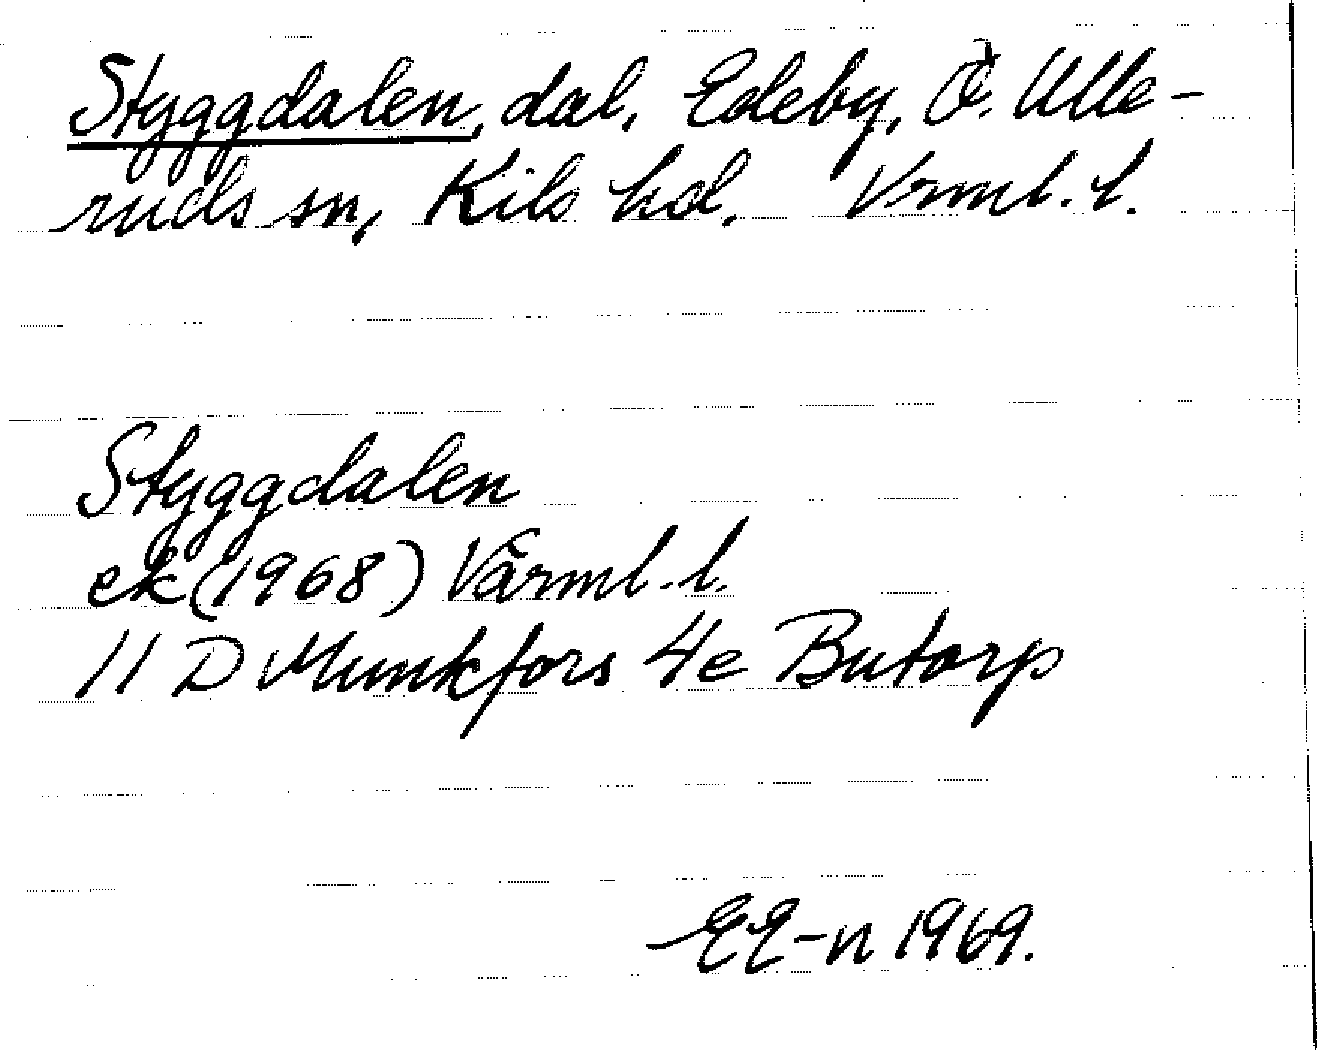 Styggdalen, dal, Edeby, Ö. Ulle-
ruds sn, Kils hd. Vrml. l.
Styggdalen
ek (1968) Värml. l.
11 D Munkfors 4e Butorp
EE-n 1969.